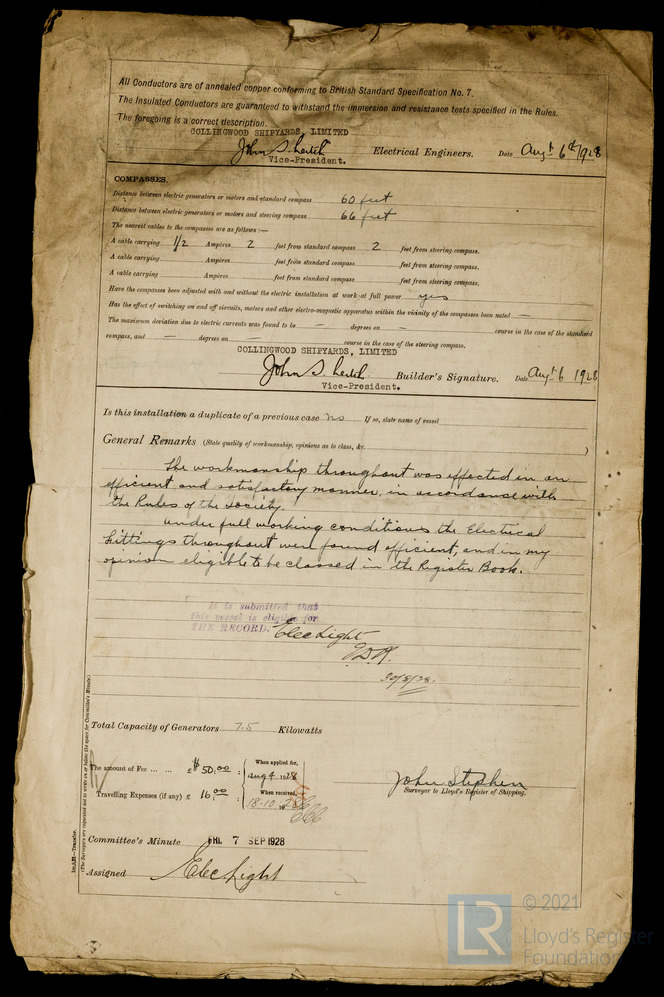 All Conductors are of annealed copper conforming to British Standard Specification No. 7.
The Insulated Conductors are guaranteed to withstand the immersion and resistance tests specified in the Rules.
The foregoing is a correct description.
COLLINGWOOD SHIPYARDS, LIMITED
John S. Leitch Electrical Engineers. Date Augt 6th/1928
Vice-President.
COMPASSES.
Distance between electric generators or motors and standard compass 60 feet
Distance between electric generators or motors and steering compass 66 feet
The nearest cables to the compasses are as follows:—
A cable carrying 1/2 Ampères 2 feet from standard compass 2 feet from steering compass.
A cable carrying Ampères feet from standard compass feet from steering compass.
A cable carrying Ampères feet from standard compass feet from steering compass.
Have the compasses been adjusted with and without the electric installation at work at full power yes
Has the effect of switching on and off circuits, motors and other electro-magnetic apparatus within the vicinity of the compasses been noted —
The maximum deviation due to electric currents was found to be — degrees on — course in the case of the standard
compass, and — degrees on — course in the case of the steering compass.
COLLINGWOOD SHIPYARDS, LIMITED
John S. Leitch Builder's Signature. Date Augt 6 1928
Vice-President.
Is this installation a duplicate of a previous case no If so, state name of vessel
General Remarks (State quality of workmanship, opinions as to class, &c. )
The workmanship throughout was effected in an
efficient and satisfactory manner, in accordance with
the Rules of the Society.
Under full working conditions the Electrical
fittings throughout were found efficient, and in my
opinion eligible to be classed in the Register Book.
It is submitted that
this vessel is eligible for
THE RECORD. Elec Light
30/8/28.
Total Capacity of Generators 7.5 Kilowatts
The amount of Fee ... ... £ $50.00 : When applied for,
Aug 4 1928
Travelling Expenses (if any) £ 16.00 : When received,
18-10-1928
John Stephen
Surveyor to Lloyd's Register of Shipping.
Committee's Minute FRI. 7 SEP 1928
Assigned Elec Light
(The Surveyors are requested not to write on or below the space for Committee's Minute.)
© 2021
LR Lloyd's Register
Foundation